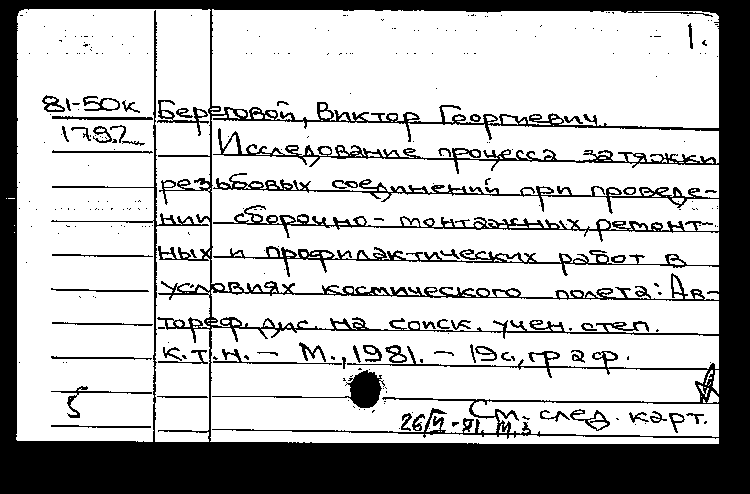 1.
81-50к Береговой, Виктор Георгиевич.
1782 Исследование процесса затяжки
резьбовых соединений при проведе-
нии сборочно-монтажных, ремонт-
ных и профилактических работ в
условиях космического полета: Ав-
тореф. дис. на соиск. учен. степ.
к.т.н. - М., 1981. - 19с, граф.
5 См. след. карт.